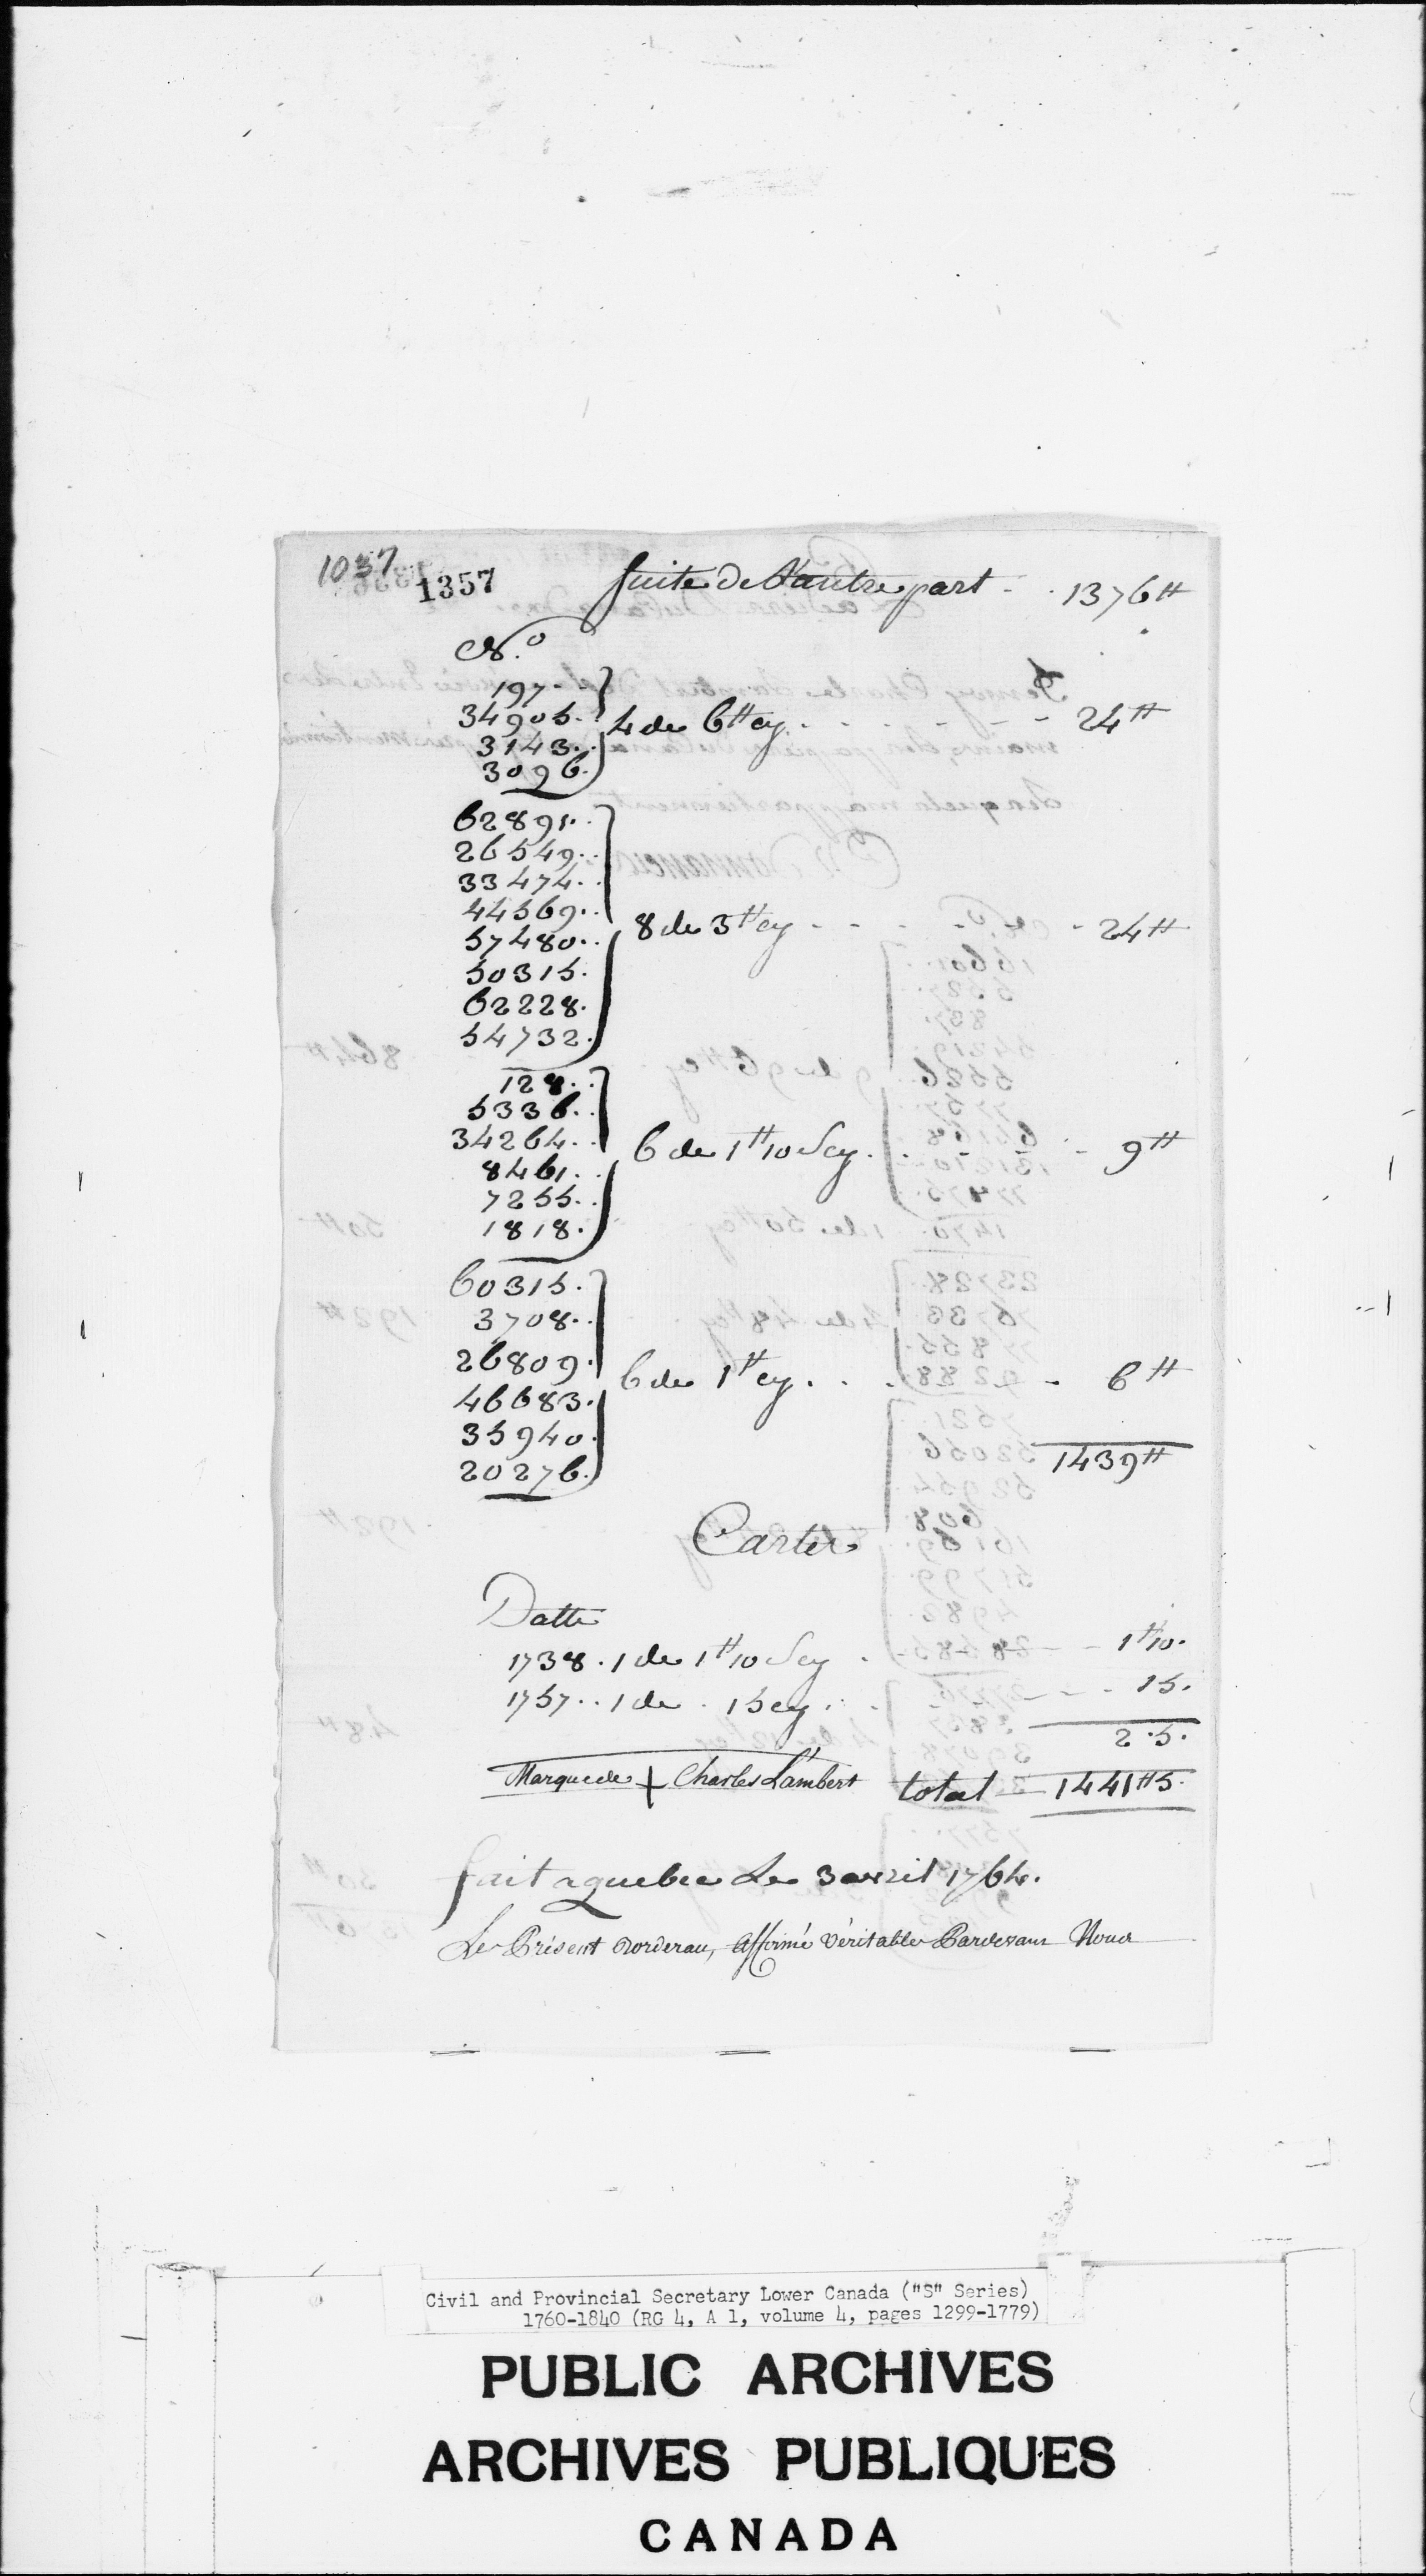 1037
1357
suite de l'autre part - . 1376 ₶
N.o
197.
34905.
3143. 4 de 6 ₶ cy . . . . - - - 24 ₶
3096.
62891.
26549.
33474.
44569.
57480. 8 de 3 ₶ cy - - - - - 24 ₶
50315.
62228.
54732.
128.
5336.
34264.
8461. 6 de 1 ₶ 10 s cy . . - - - 9 ₶
7255.
1818.
60315.
3708.
26809.
46683. 6 de 1 ₶ cy . . . - 6 ₶
35940.
20276.
1439 ₶
Cartes
Datte
1738 . 1 de 1 ₶ 10 s cy . - - 1 ₶ 10.
1757 . . 1 de . 15 cy . . - - - 15.
2 . 5.
Marque de + Charles Lambert total — 1441 ₶ 5.
fait a quebec Le 3 avril 1764.
Le Présent Bordereau, affirmé véritable Pardevant Nous
Civil and Provincial Secretary Lower Canada ("S" Series)
1760-1840 (RG 4, A 1, volume 4, pages 1299-1779)
PUBLIC ARCHIVES
ARCHIVES PUBLIQUES
CANADA